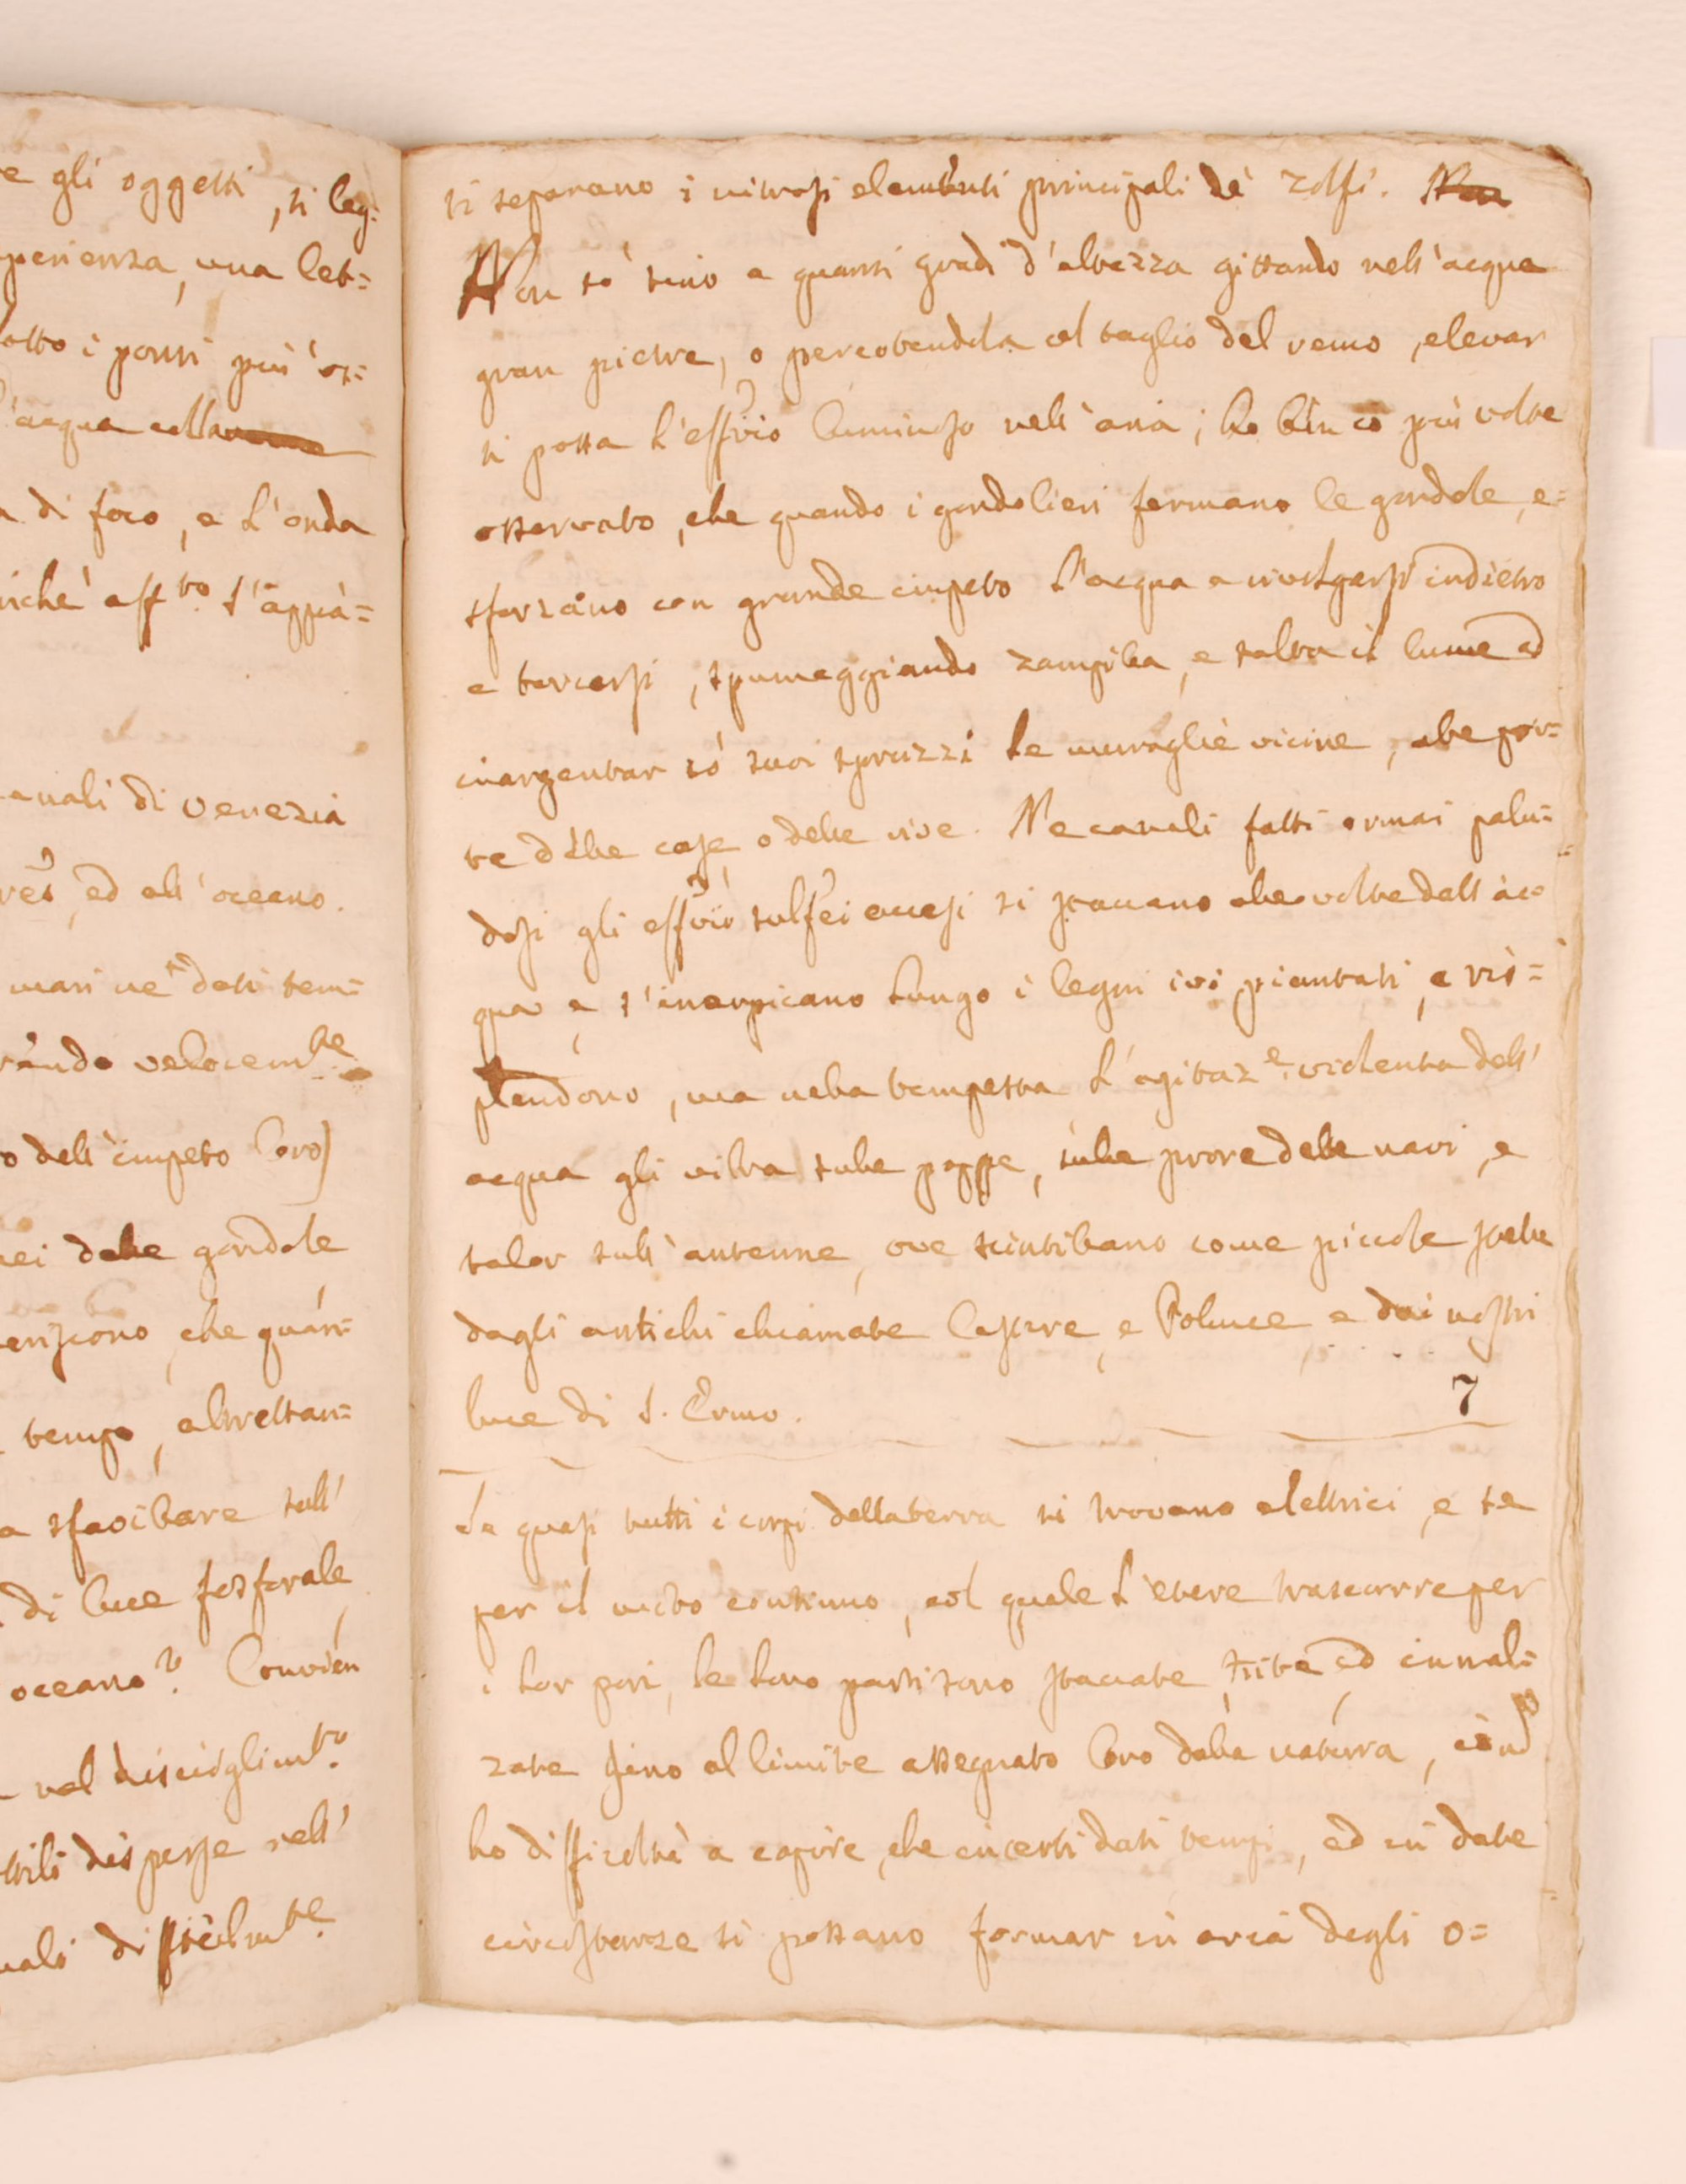 e gli oggetti, si leg=
perienza, una let=
sotto i ponti più os=
l'acqua colla
a di foco, e l'onda
siche aff.to s'appià=
canali di Venezia
ed all'oceano.
mari ne dati tem=
rando velocem.te
o dell'impeto loro)
nei delle gondole
feriscono, che quan=
tempo, altrettan=
a sfavillare sull'
di luce fosforale
oceano? Convien
nel discioglim.to
ttili disperse nell'
uali difficilm.te
si separano i nitrosi elementi principali de' zolfi. Non
Non sò sino a quanti gradi d'altezza gittando nell'acque
gran pietre, o percotendola col taglio del remo, elevar
si possa l'effluvio luminoso nell'aria; ho ben io più volte
osservato, che quando i gondolieri fermano le gondole, e=
sforzano con grande impeto l'acqua a rivolgersi indietro
e torcersi, spumeggiando zampilla, e salta il lume ad
inargentar co' suoi spruzzi le muraglie vicine, alle por=
te delle case, o delle rive. Ne canali fatti ormai palu=
dosi gli effluvi sulfei accesi si staccano alle volte dall'ac=
qua e s'inerpicano lungo i legni ivi piantati, e ris=
plendono, ma nella tempesta l'agitaz.e violenta dell'
acqua gli vibra sulle poppe, sulle prore delle navi, e
talor sull'antenne, ove scintillano come piccole stelle
dagli antichi chiamate Castore, e Polluce e dai nostri
luce di S. Ermo.
7
Se quasi tutti i corpi della terra si trovano elettrici, e se
per il moto continuo, col quale l'etere trascorre per
i lor pori, le loro parti sono staccate, trite ed innal=
zate fino al limite assegnato loro dalla natura, io non
ho difficoltà a capire, che in certi dati tempi, ed in date
circostanze si possano formar in aria degli o=